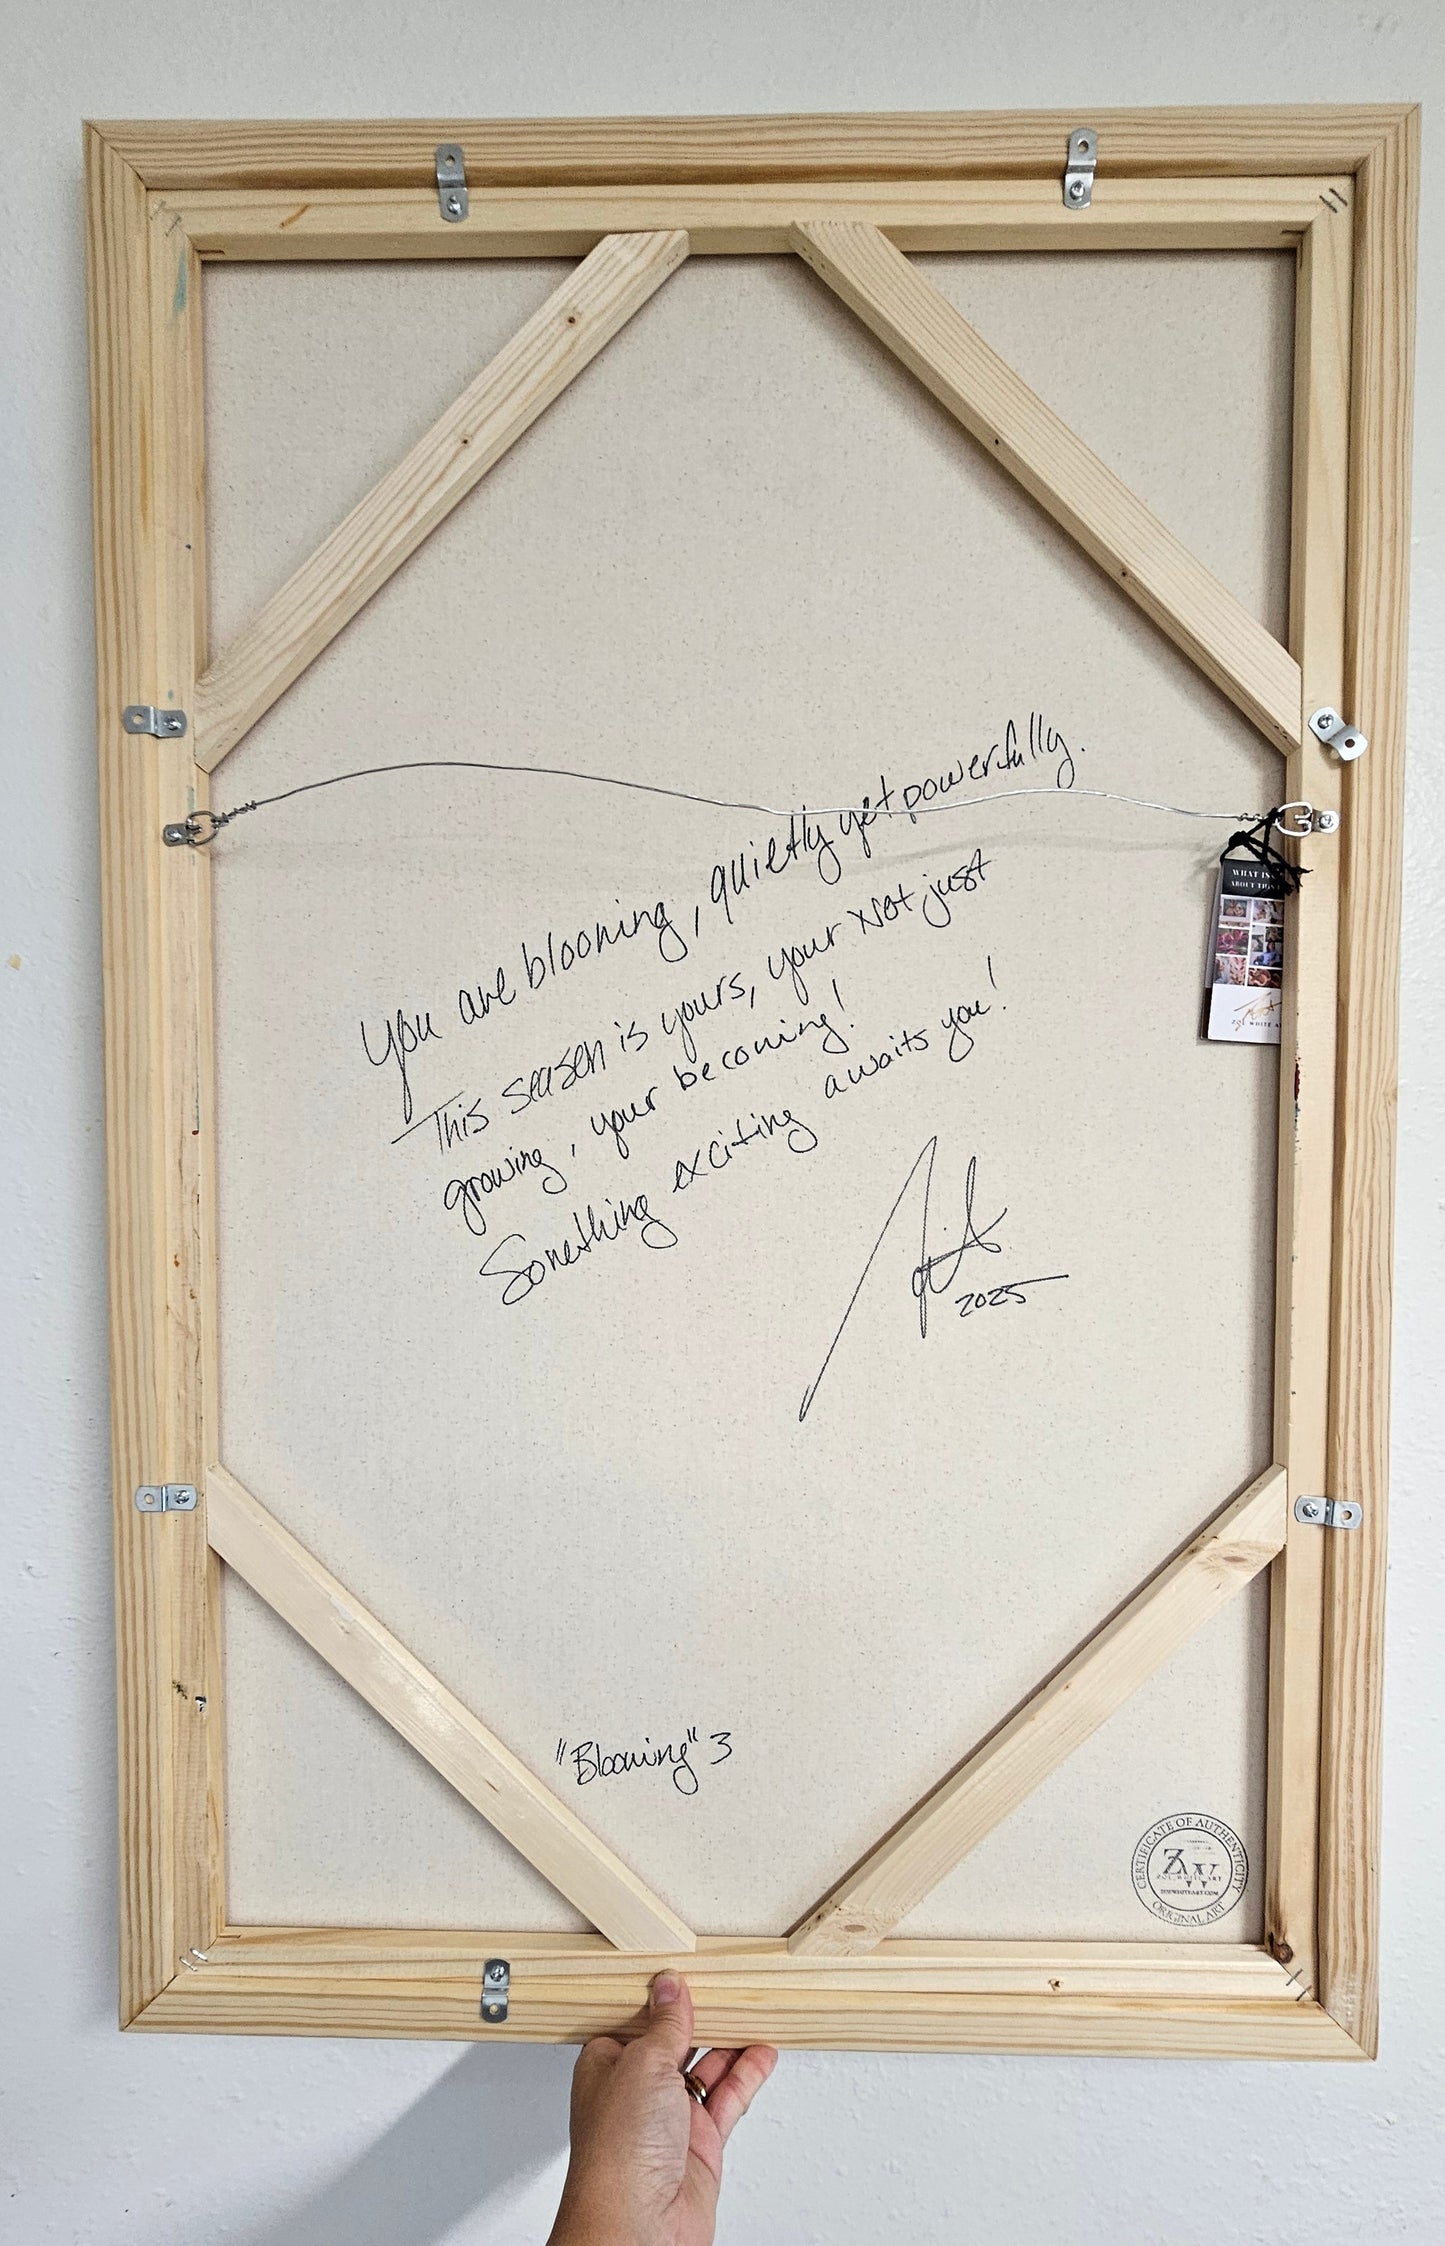 You are blooming, quietly yet powerfully.
This season is yours, your not just
growing, your becoming!
Something exciting awaits you!
2025
"Blooming" 3
WHAT IS
ABOUT THIS
ZOE WHITE A
CERTIFICATE OF AUTHENTICITY
ZW
ZOE WHITE ART
ZOEWHITEART.COM
ORIGINAL ART